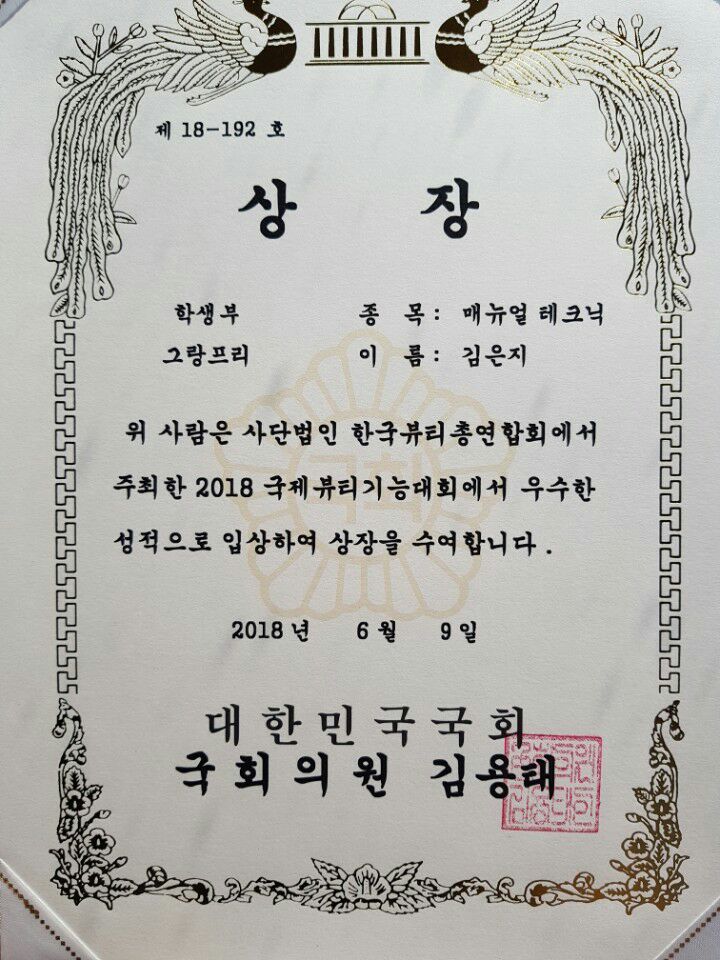 제 18-192 호
상 장
학생부 종 목 : 매뉴얼 테크닉
그랑프리 이 름 : 김은지
위 사람은 사단법인 한국뷰티총연합회에서
주최한 2018 국제뷰티기능대회에서 우수한
성적으로 입상하여 상장을 수여합니다.
2018 년 6 월 9 일
대한민국국회
국회의원 김용태
국회